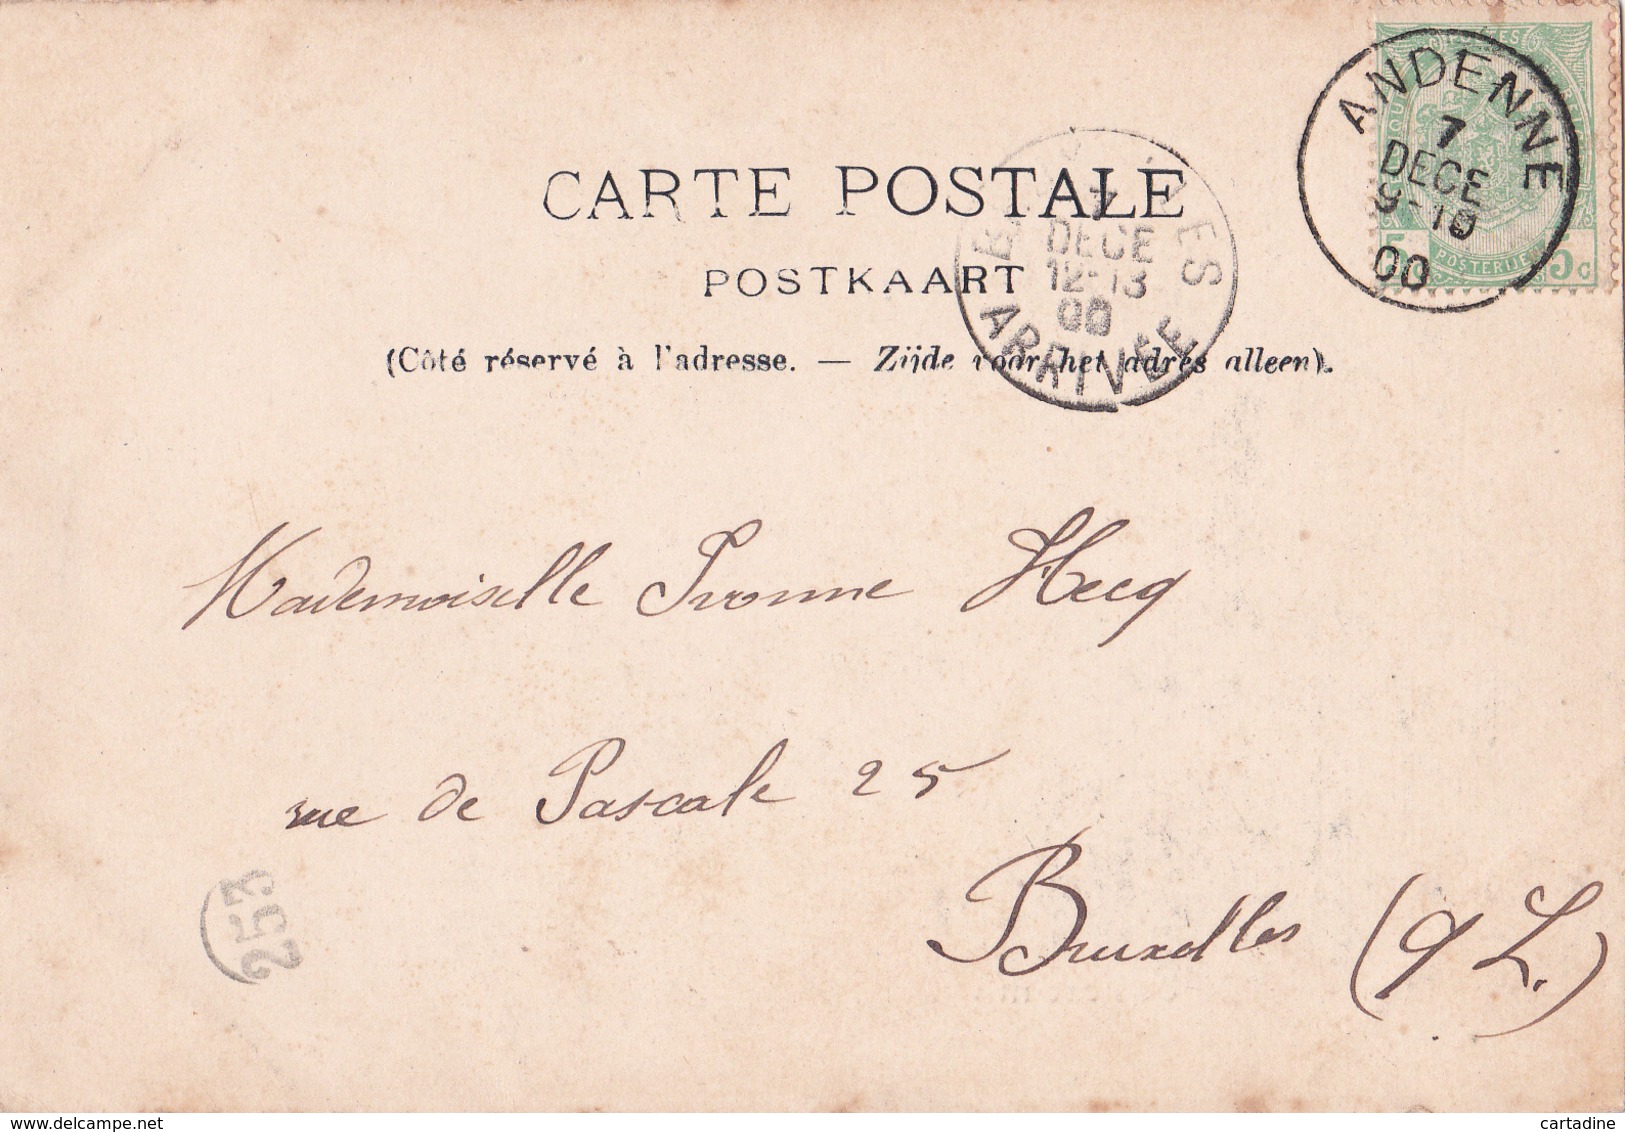 CARTE POSTALE
POSTKAART
(Côté réservé à l'adresse. — Zijde voor het adres alleen).
ANDENNE
7
DECE
9-10
00
POSTERIJEN
5 5c
7
DECE
12-13
00
ARRIVÉE
Mademoiselle Yvonne Hecq
rue de Pascale 25
Bruxelles (q L.)
253
delcampe.net
cartadine